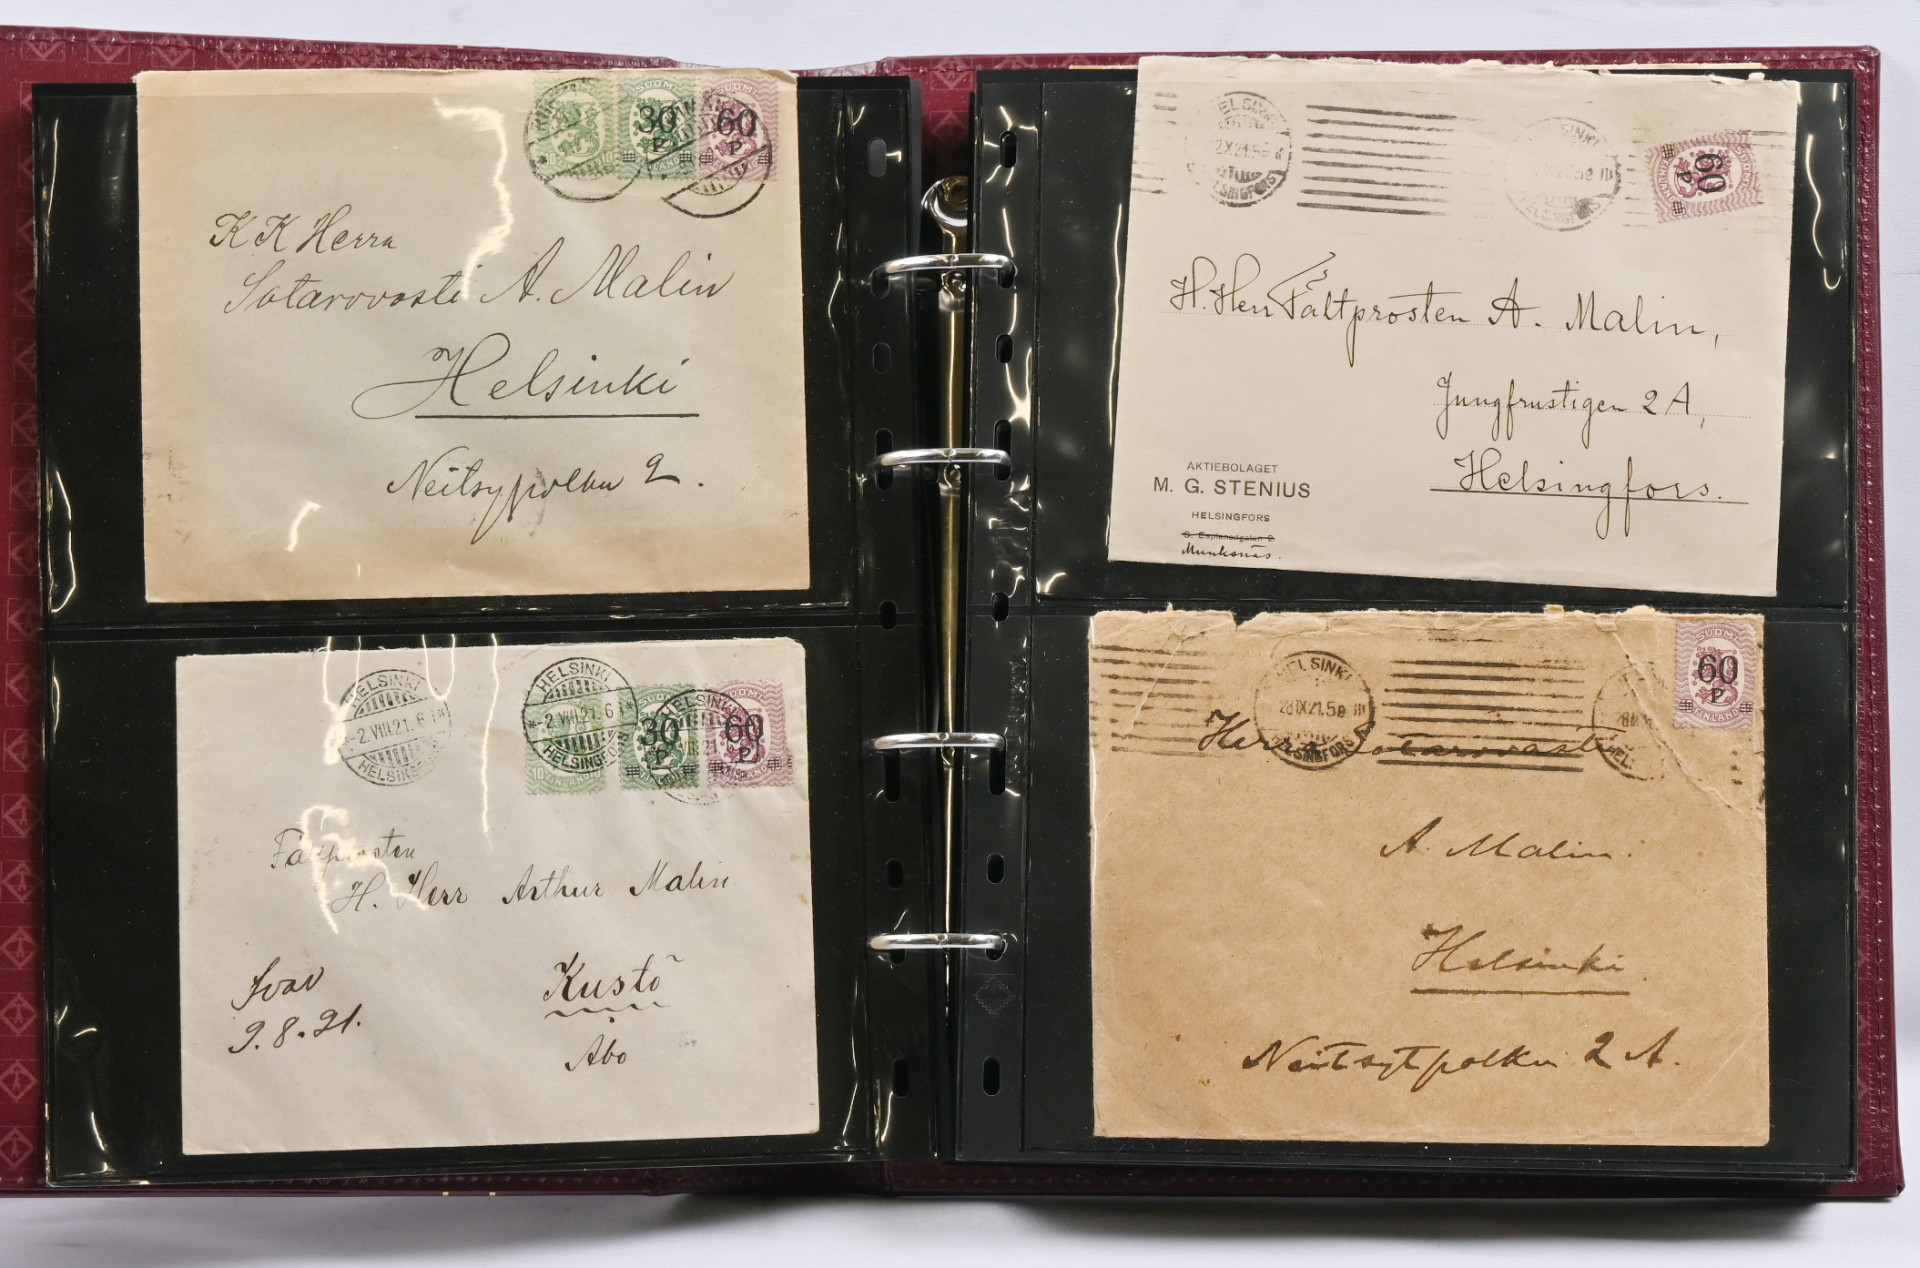 SUOMI
30
P
SUOMI
60
P
K K Herra
Sotarovasti A. Malin
Helsinki
Neitsypolku 2.
HELSINKI
HELSINGFORS
60
P
SUOMI
H. Herr Fältprosten A. Malin,
Jungfrustigen 2 A,
Helsingfors.
AKTIEBOLAGET
M. G. STENIUS
HELSINGFORS
S. Esplanadgatan 2
Munksnäs.
HELSINKI
-2.VIII.21. 6 I
HELSINGFORS
HELSINKI
-2.VIII.21. 6 I
HELSINGFORS
10 FINLAND 10
SUOMI
30
P
SUOMI
60
P
Fältprosten
H. Herr Arthur Malin
Svar
9.8.21.
Kustö
Åbo
HELSINKI
28IX21.58 III
HELSINGFORS
SUOMI
60
P
FINLAND
Herra Sotarovasti
A. Malin.
Helsinki.
Neitsytpolku 2 A.